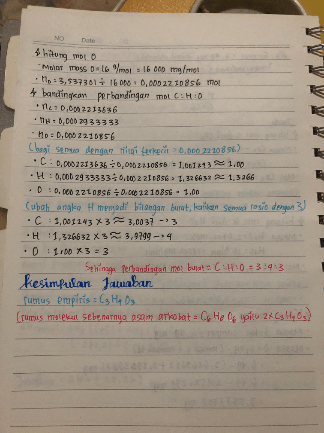 NO Date
↳ hitung mol O
· Molar mass O = 16 g/mol = 16 000 mg/mol
· nO = 3,537301 ÷ 16000 = 0,0002210856 mol
↳ bandingkan perbandingan mol C : H : O
· nC = 0,0002213636
· nH = 0,0002933333
· nO = 0,0002210856
(bagi semua dengan nilai terkecil = 0,0002210856)
· C : 0,0002213636 ÷ 0,0002210856 = 1,001243 ≈ 1,00
· H : 0,0002933333 ÷ 0,0002210856 = 1,326632 ≈ 1,3266
· O : 0,0002210856 ÷ 0,0002210856 = 1,00
(ubah angka H menjadi bilangan bulat, kalikan semua rasio dengan 3)
· C : 1,001243 x 3 ≈ 3,0037 → 3
· H : 1,326632 x 3 ≈ 3,9799 → 4
· O : 1,00 x 3 = 3
Sehingga perbandingan mol bulat = C : H : O = 3 : 4 : 3
Kesimpulan Jawaban
rumus empiris = C3H4O3
(rumus molekul sebenarnya asam askorbat = C6H8O6 yaitu 2 x C3H4O3)